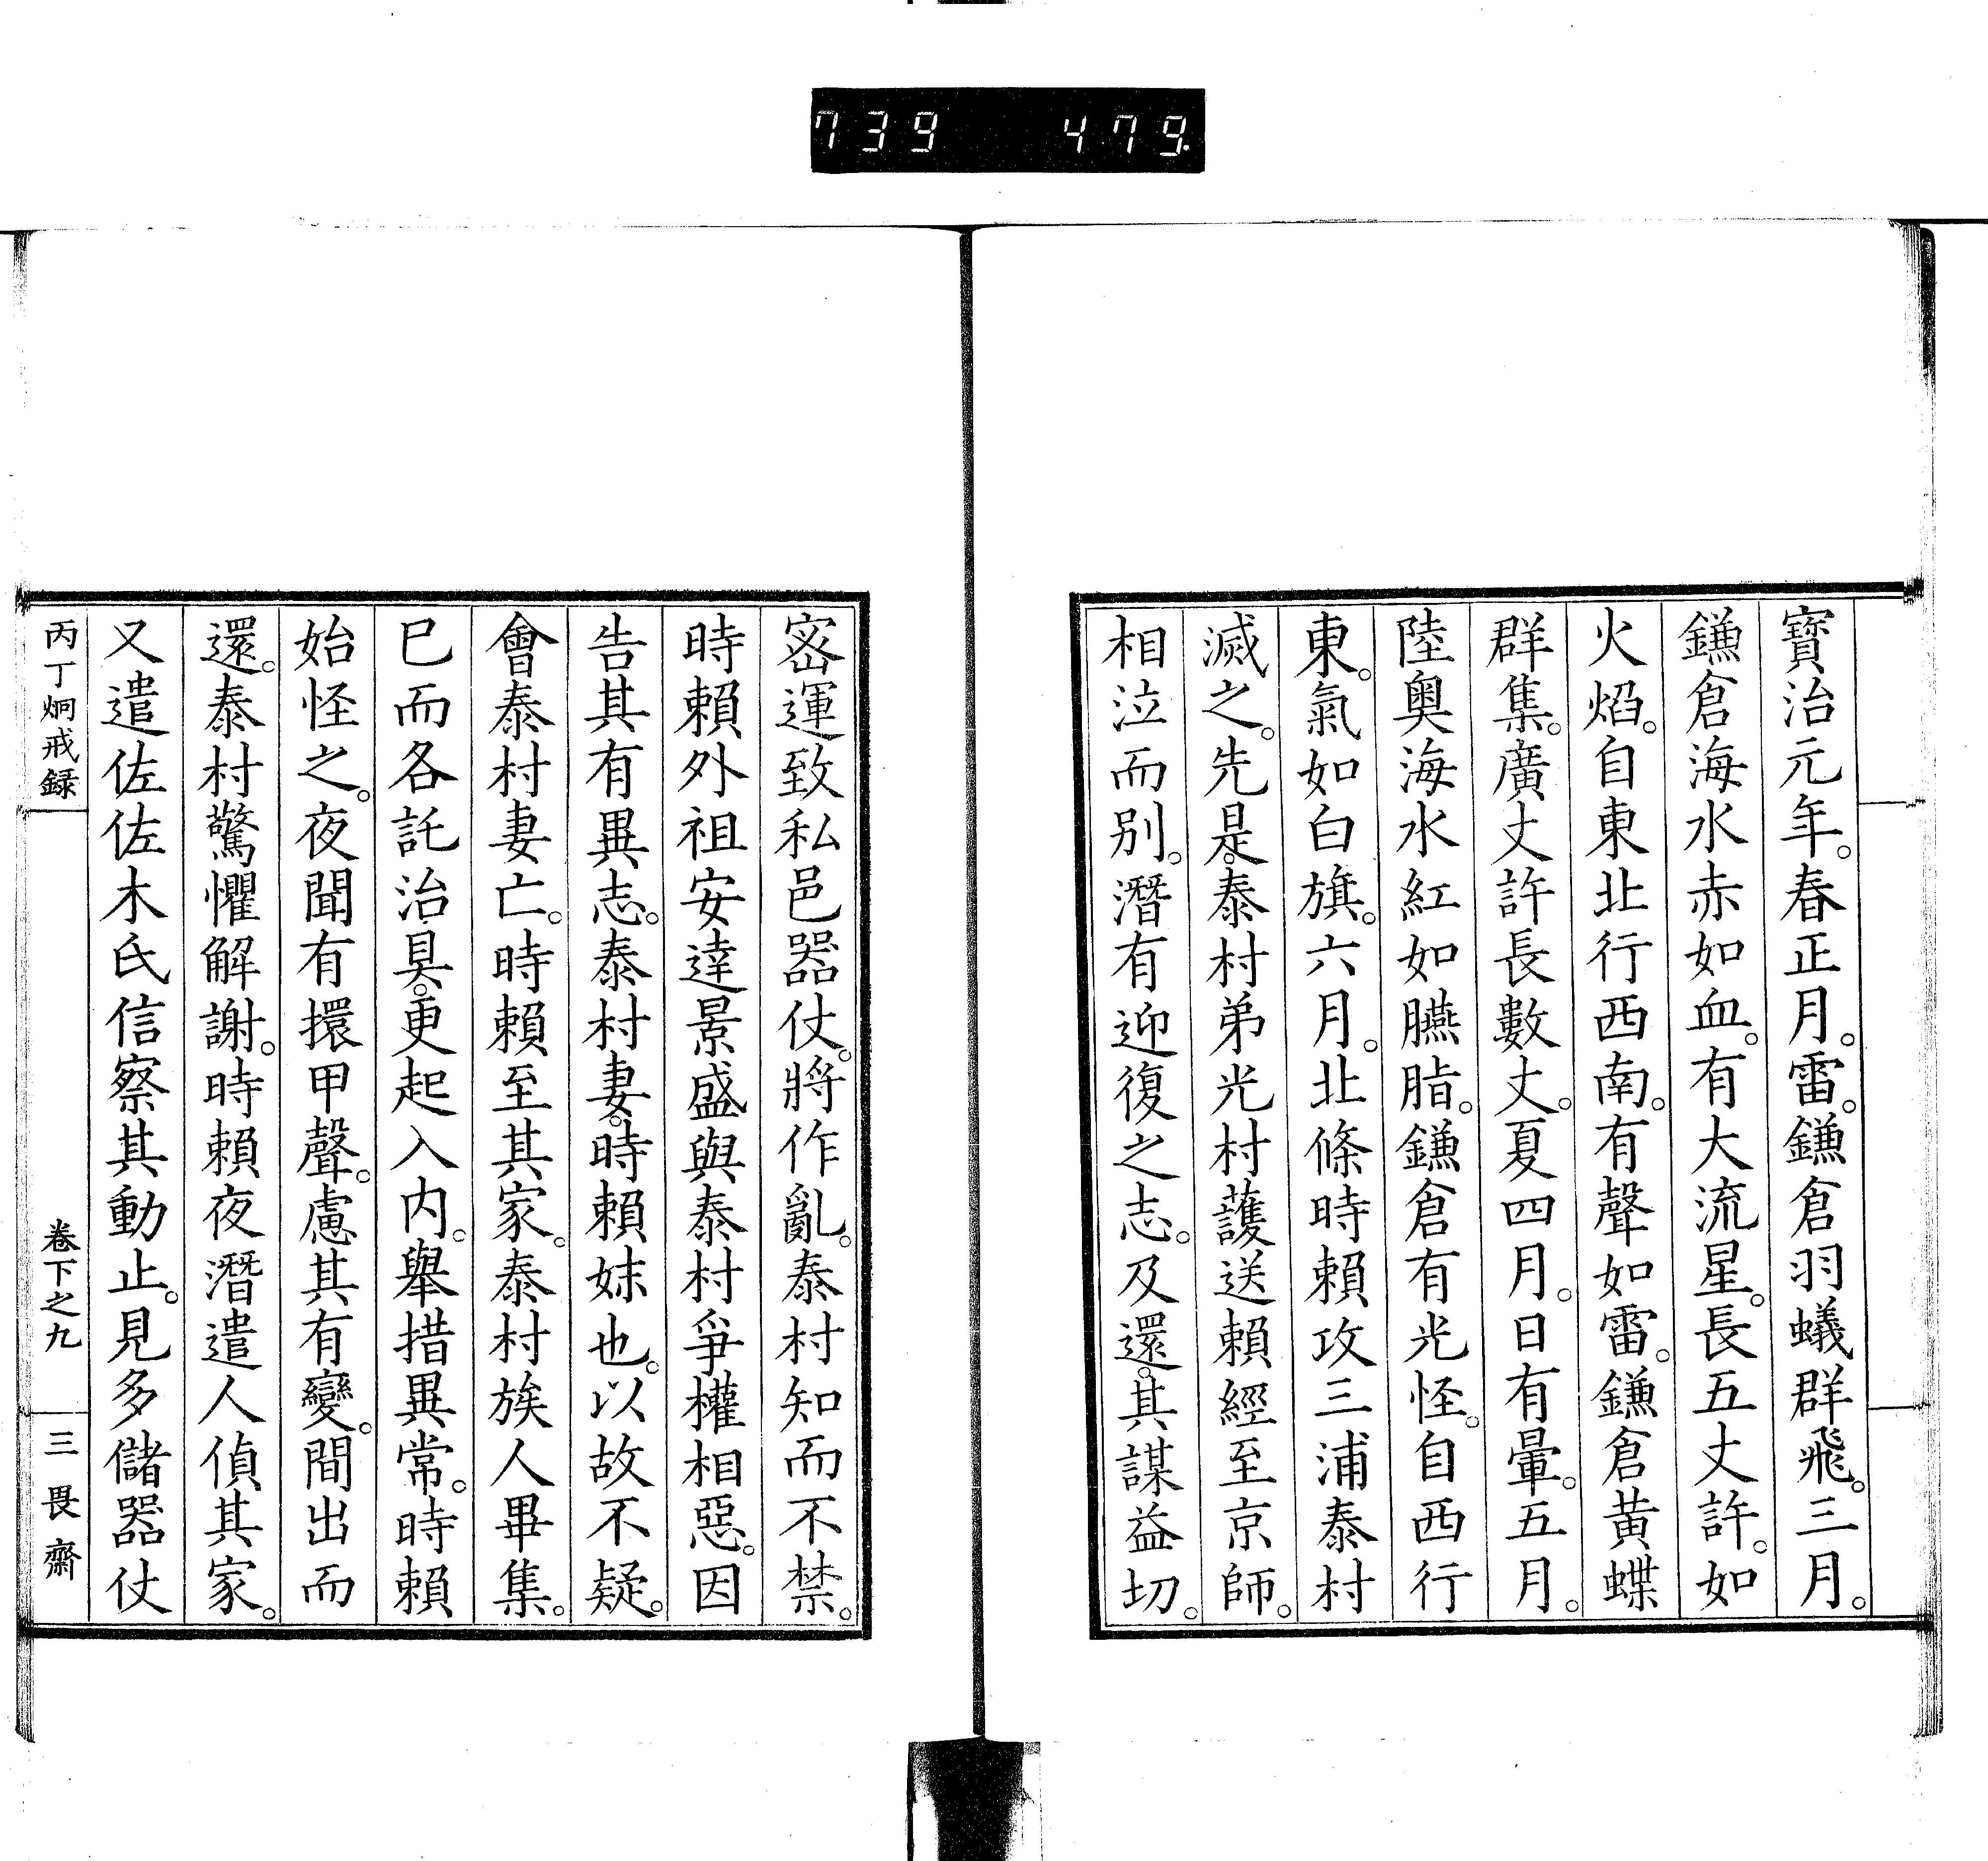 739 479.
寶治元年。春正月。雷。鎌倉羽蟻群飛。三月。
鎌倉海水赤如血。有大流星。長五丈許。如
火焰。自東北行西南。有聲如雷。鎌倉黄蝶
群集。廣丈許長數丈。夏四月。日有暈。五月。
陸奥海水紅如臙脂。鎌倉有光怪。自西行
東。氣如白旗。六月。北條時賴攻三浦泰村
滅之。先是。泰村弟光村護送賴經至京師。
相泣而別。潛有迎復之志。及還。其謀益切。
密運致私邑器仗。將作亂。泰村知而不禁。
時賴外祖安達景盛與泰村爭權相惡。因
告其有異志。泰村妻。時賴妹也。以故不疑。
會泰村妻亡。時賴至其家。泰村族人畢集。
已而各託治具。更起入内。舉措異常。時賴
始怪之。夜聞有擐甲聲。慮其有變。間出而
還。泰村驚懼解謝。時賴夜潛遣人偵其家。
又遣佐佐木氏信察其動止。見多儲器仗
丙丁炯戒録 卷下之九 三畏齋